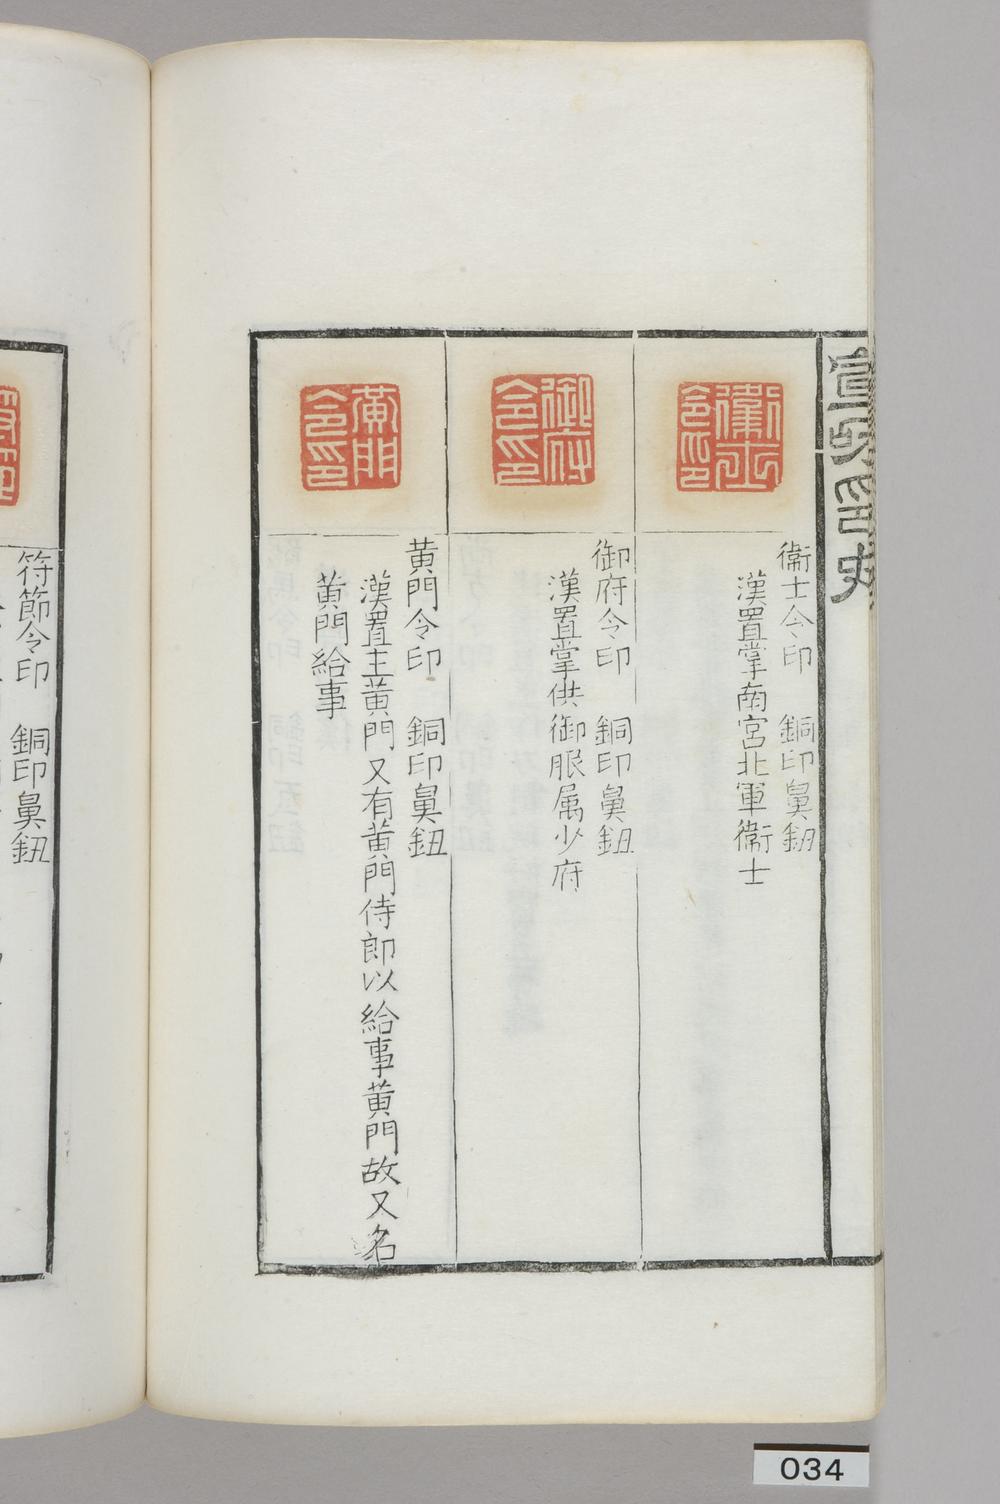 衞士令印
衞士令印　銅印鼻鈕
漢置掌南宮北軍衞士
御府令印
御府令印　銅印鼻鈕
漢置掌供御服属少府
黃門令印
黄門令印　銅印鼻鈕
漢置主黄門又有黄門侍郎以給事黄門故又名
黄門給事
符節令印　銅印鼻鈕
034